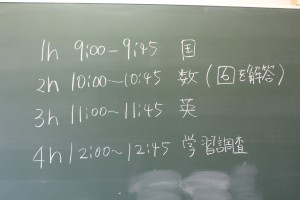 1h 9:00-9:45 国
2h 10:00~10:45 数(固を解答)
3h 11:00~11:45 英
4h 12:00~12:45 学習調査